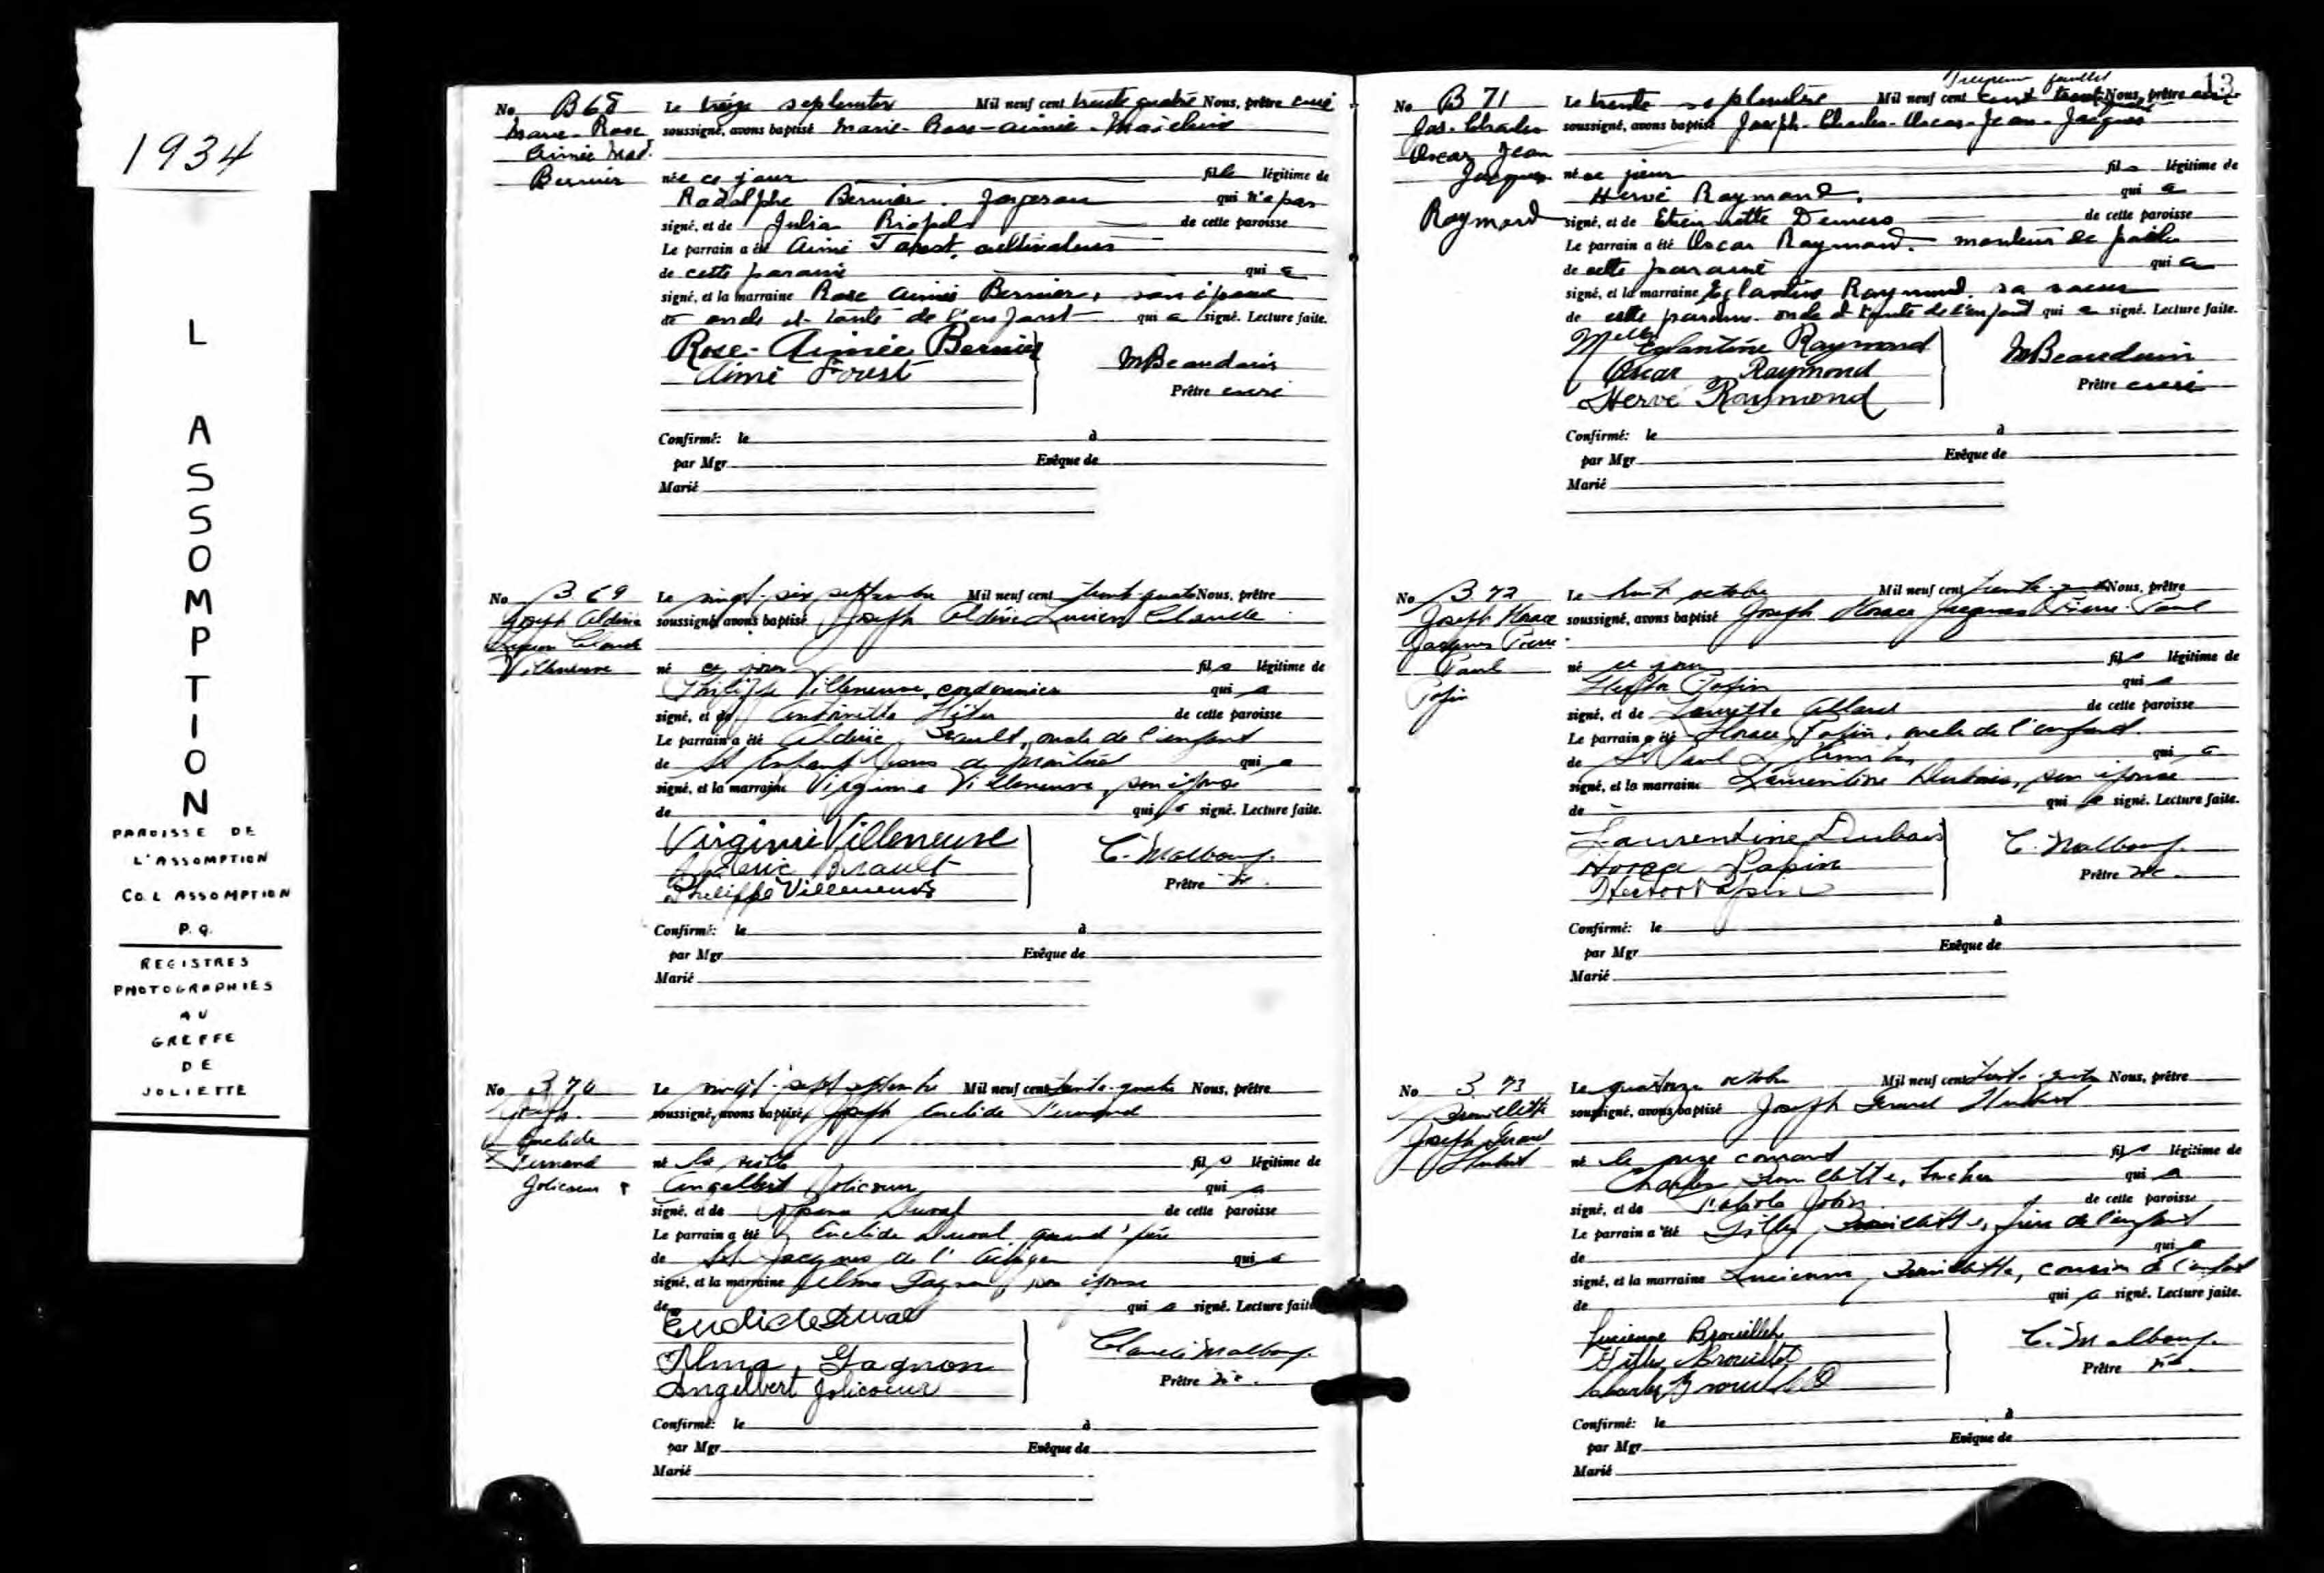 1934
L
A
S
S
O
M
P
T
I
O
N
PAROISSE DE
L'ASSOMPTION
CO. L ASSOMPTION
P. Q.
REGISTRES
PHOTOGRAPHIES
AU
GREFFE
DE
JOLIETTE
No B 68
Marie-Rose
Aimée Mad.
Bernier
Le treize septembre Mil neuf cent trente quatre Nous, prêtre curé
soussigné, avons baptisé Marie-Rose-Aimée-Madeleine
née ce jour fille légitime de
Rodolphe Bernier, forgeron qui n'a pas
signé, et de Julia Riopel de cette paroisse
Le parrain a été Aimé Forest, cultivateur
de cette paroisse qui a
signé, et la marraine Rose Aimée Bernier, son épouse
de oncle et tante de l'enfant qui a signé. Lecture faite.
Rose-Aimée Bernier
Aimé Forest
M Beaudoin
Prêtre curé
Confirmé: le à
par Mgr Evêque de
Marié
No B 69
Joseph Aldéric
Lucien Claude
Villeneuve
Le vingt-six septembre Mil neuf cent trente-quatre Nous, prêtre
soussigné, avons baptisé Joseph Aldéric Lucien Claude
né ce jour fils légitime de
Philippe Villeneuve, cordonnier qui a
signé, et de Antoinette de cette paroisse
Le parrain a été Aldéric Brault, oncle de l'enfant
de St Enfant Jésus de Montréal qui a
signé, et la marraine Virginie Villeneuve, son épouse
de qui a signé. Lecture faite.
Virginie Villeneuve
Aldéric Brault
Philippe Villeneuve
C. Malboeuf
Prêtre vic.
Confirmé: le à
par Mgr Evêque de
Marié
No B 70
Joseph
Euclide
Fernand
Jolicoeur
Le vingt-sept septembre Mil neuf cent trente-quatre Nous, prêtre
soussigné, avons baptisé Joseph Euclide Fernand
né la veille fils légitime de
Angelbert Jolicoeur qui a
signé, et de Duval de cette paroisse
Le parrain a été Euclide Duval, grand'père
de St Jacques de l'Achigan qui a
signé, et la marraine Alma Gagnon, son épouse
de qui a signé. Lecture faite
Euclide Duval
Alma Gagnon
Angelbert Jolicoeur
Clarence Malboeuf
Prêtre vic.
Confirmé: le à
par Mgr Evêque de
Marié
feuillet 13
No B 71
Jos. Charles
Oscar Jean
Jacques
Raymond
Le trente septembre Mil neuf cent Nous, prêtre curé
soussigné, avons baptisé Joseph-Charles-Oscar-Jean-Jacques
né ce jour fils légitime de
Hervé Raymond, qui a
signé, et de Demers de cette paroisse
Le parrain a été Oscar Raymond, monteur de
de cette paroisse qui a
signé, et la marraine Eglantine Raymond, sa soeur
de cette paroisse oncle et tante de l'enfant qui a signé. Lecture faite.
Melle Eglantine Raymond
Oscar Raymond
Hervé Raymond
M Beaudoin
Prêtre curé
Confirmé: le à
par Mgr Evêque de
Marié
No B 72
Joseph Horace
Jacques Pierre
Paul
Papin
Le huit octobre Mil neuf cent trente-quatre Nous, prêtre
soussigné, avons baptisé Joseph Horace Jacques Pierre-Paul
né ce jour fils légitime de
Hector Papin qui a
signé, et de Laurette Allard de cette paroisse
Le parrain a été Horace Papin, oncle de l'enfant
de St Paul qui a
signé, et la marraine Laurentine Dubois, son épouse
de qui a signé. Lecture faite.
Laurentine Dubois
Horace Papin
Hector Papin
C. Malboeuf
Prêtre vic.
Confirmé: le à
par Mgr Evêque de
Marié
No B 73
Brouillette
Joseph Gérard
Hubert
Le quatorze octobre Mil neuf cent trente-quatre Nous, prêtre
soussigné, avons baptisé Joseph Gérard Hubert
né le onze courant fils légitime de
Charles Brouillette, boucher qui a
signé, et de de cette paroisse
Le parrain a été Gilles Brouillette, frère de l'enfant
de qui a
signé, et la marraine Lucienne Brouillette, cousine de l'enfant
de qui a signé. Lecture faite.
Lucienne Brouillette
Gilles Brouillette
Charles Brouillette
C. Malboeuf
Prêtre vic.
Confirmé: le à
par Mgr Evêque de
Marié